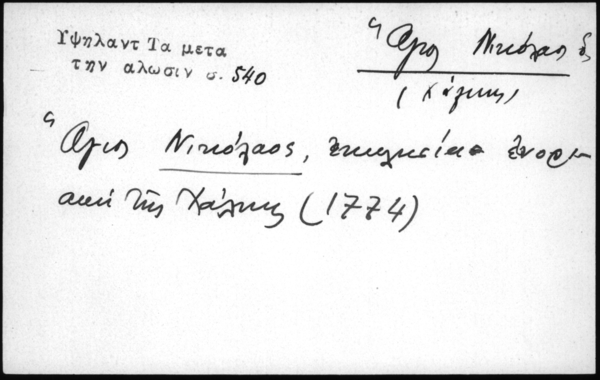 Υψηλαντ Τα μετα
την αλωσιν σ. 540
Ἅγιος Νικόλαος
(Χάλκης)
Ἅγιος Νικόλαος, ἐκκλησία ἐνορι-
ακή τῆς Χάλκης (1774)